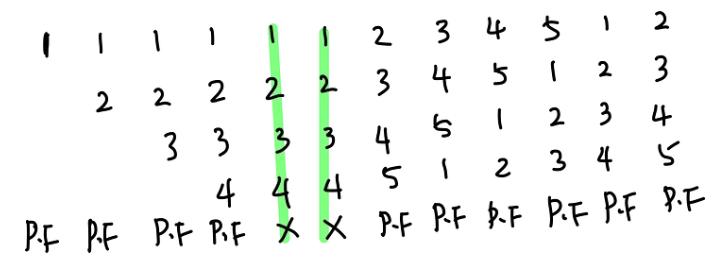 1 1 1 1 1 1 2 3 4 5 1 2
2 2 2 2 2 3 4 5 1 2 3
3 3 3 3 4 5 1 2 3 4
4 4 4 5 1 2 3 4 5
P.F P.F P.F P.F X X P.F P.F P.F P.F P.F P.F